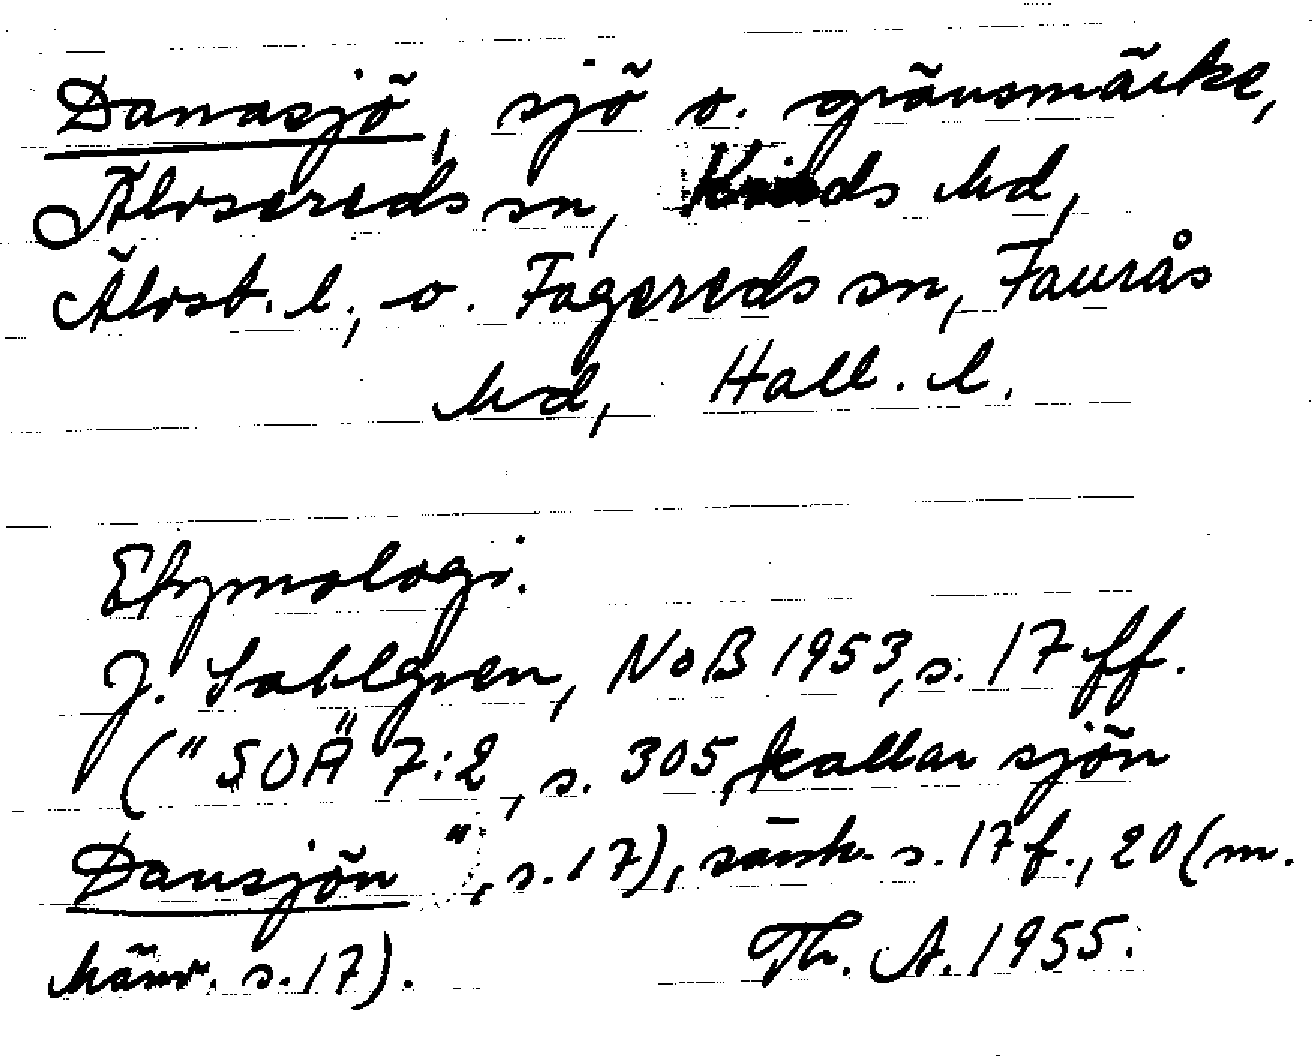 Danasjö, sjö o. gränsmärke,
Älvsereds sn, Kinds hd,
Älvsb. l., o. Fagereds sn, Faurås
hd, Hall. l.
Etymologi.
J. Sahlgren, NoB 1953, s. 17 ff.
("SOÄ 7:2, s. 305, kallar sjön
Dansjön", s. 17), särsk. s. 17 f., 20 (m.
hänv. s. 17).
Th. A. 1955.